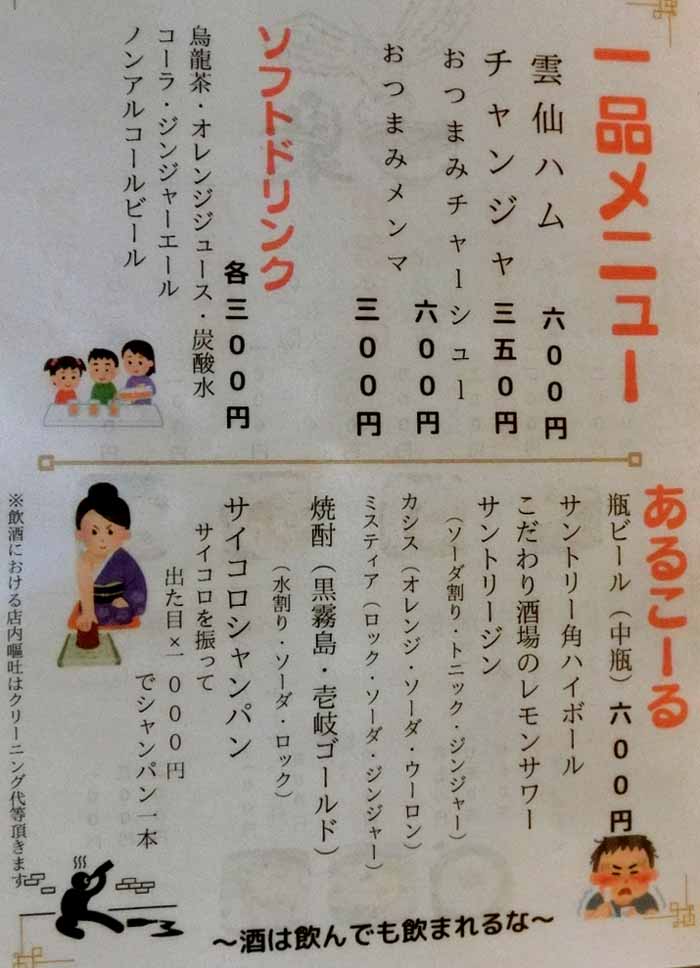 一品メニュー
雲仙ハム 六〇〇円
チャンジャ 三五〇円
おつまみチャーシュー 六〇〇円
おつまみメンマ 三〇〇円
ソフトドリンク 各三〇〇円
烏龍茶・オレンジジュース・炭酸水
コーラ・ジンジャーエール
ノンアルコールビール
あるこーる
瓶ビール（中瓶）六〇〇円
サントリー角ハイボール
こだわり酒場のレモンサワー
サントリージン
（ソーダ割り・トニック・ジンジャー）
カシス（オレンジ・ソーダ・ウーロン）
ミスティア（ロック・ソーダ・ジンジャー）
焼酎（黒霧島・壱岐ゴールド）
（水割り・ソーダ・ロック）
サイコロシャンパン
サイコロを振って
出た目×一〇〇〇円
でシャンパン一本
※飲酒における店内嘔吐はクリーニング代等頂きます
～酒は飲んでも飲まれるな～